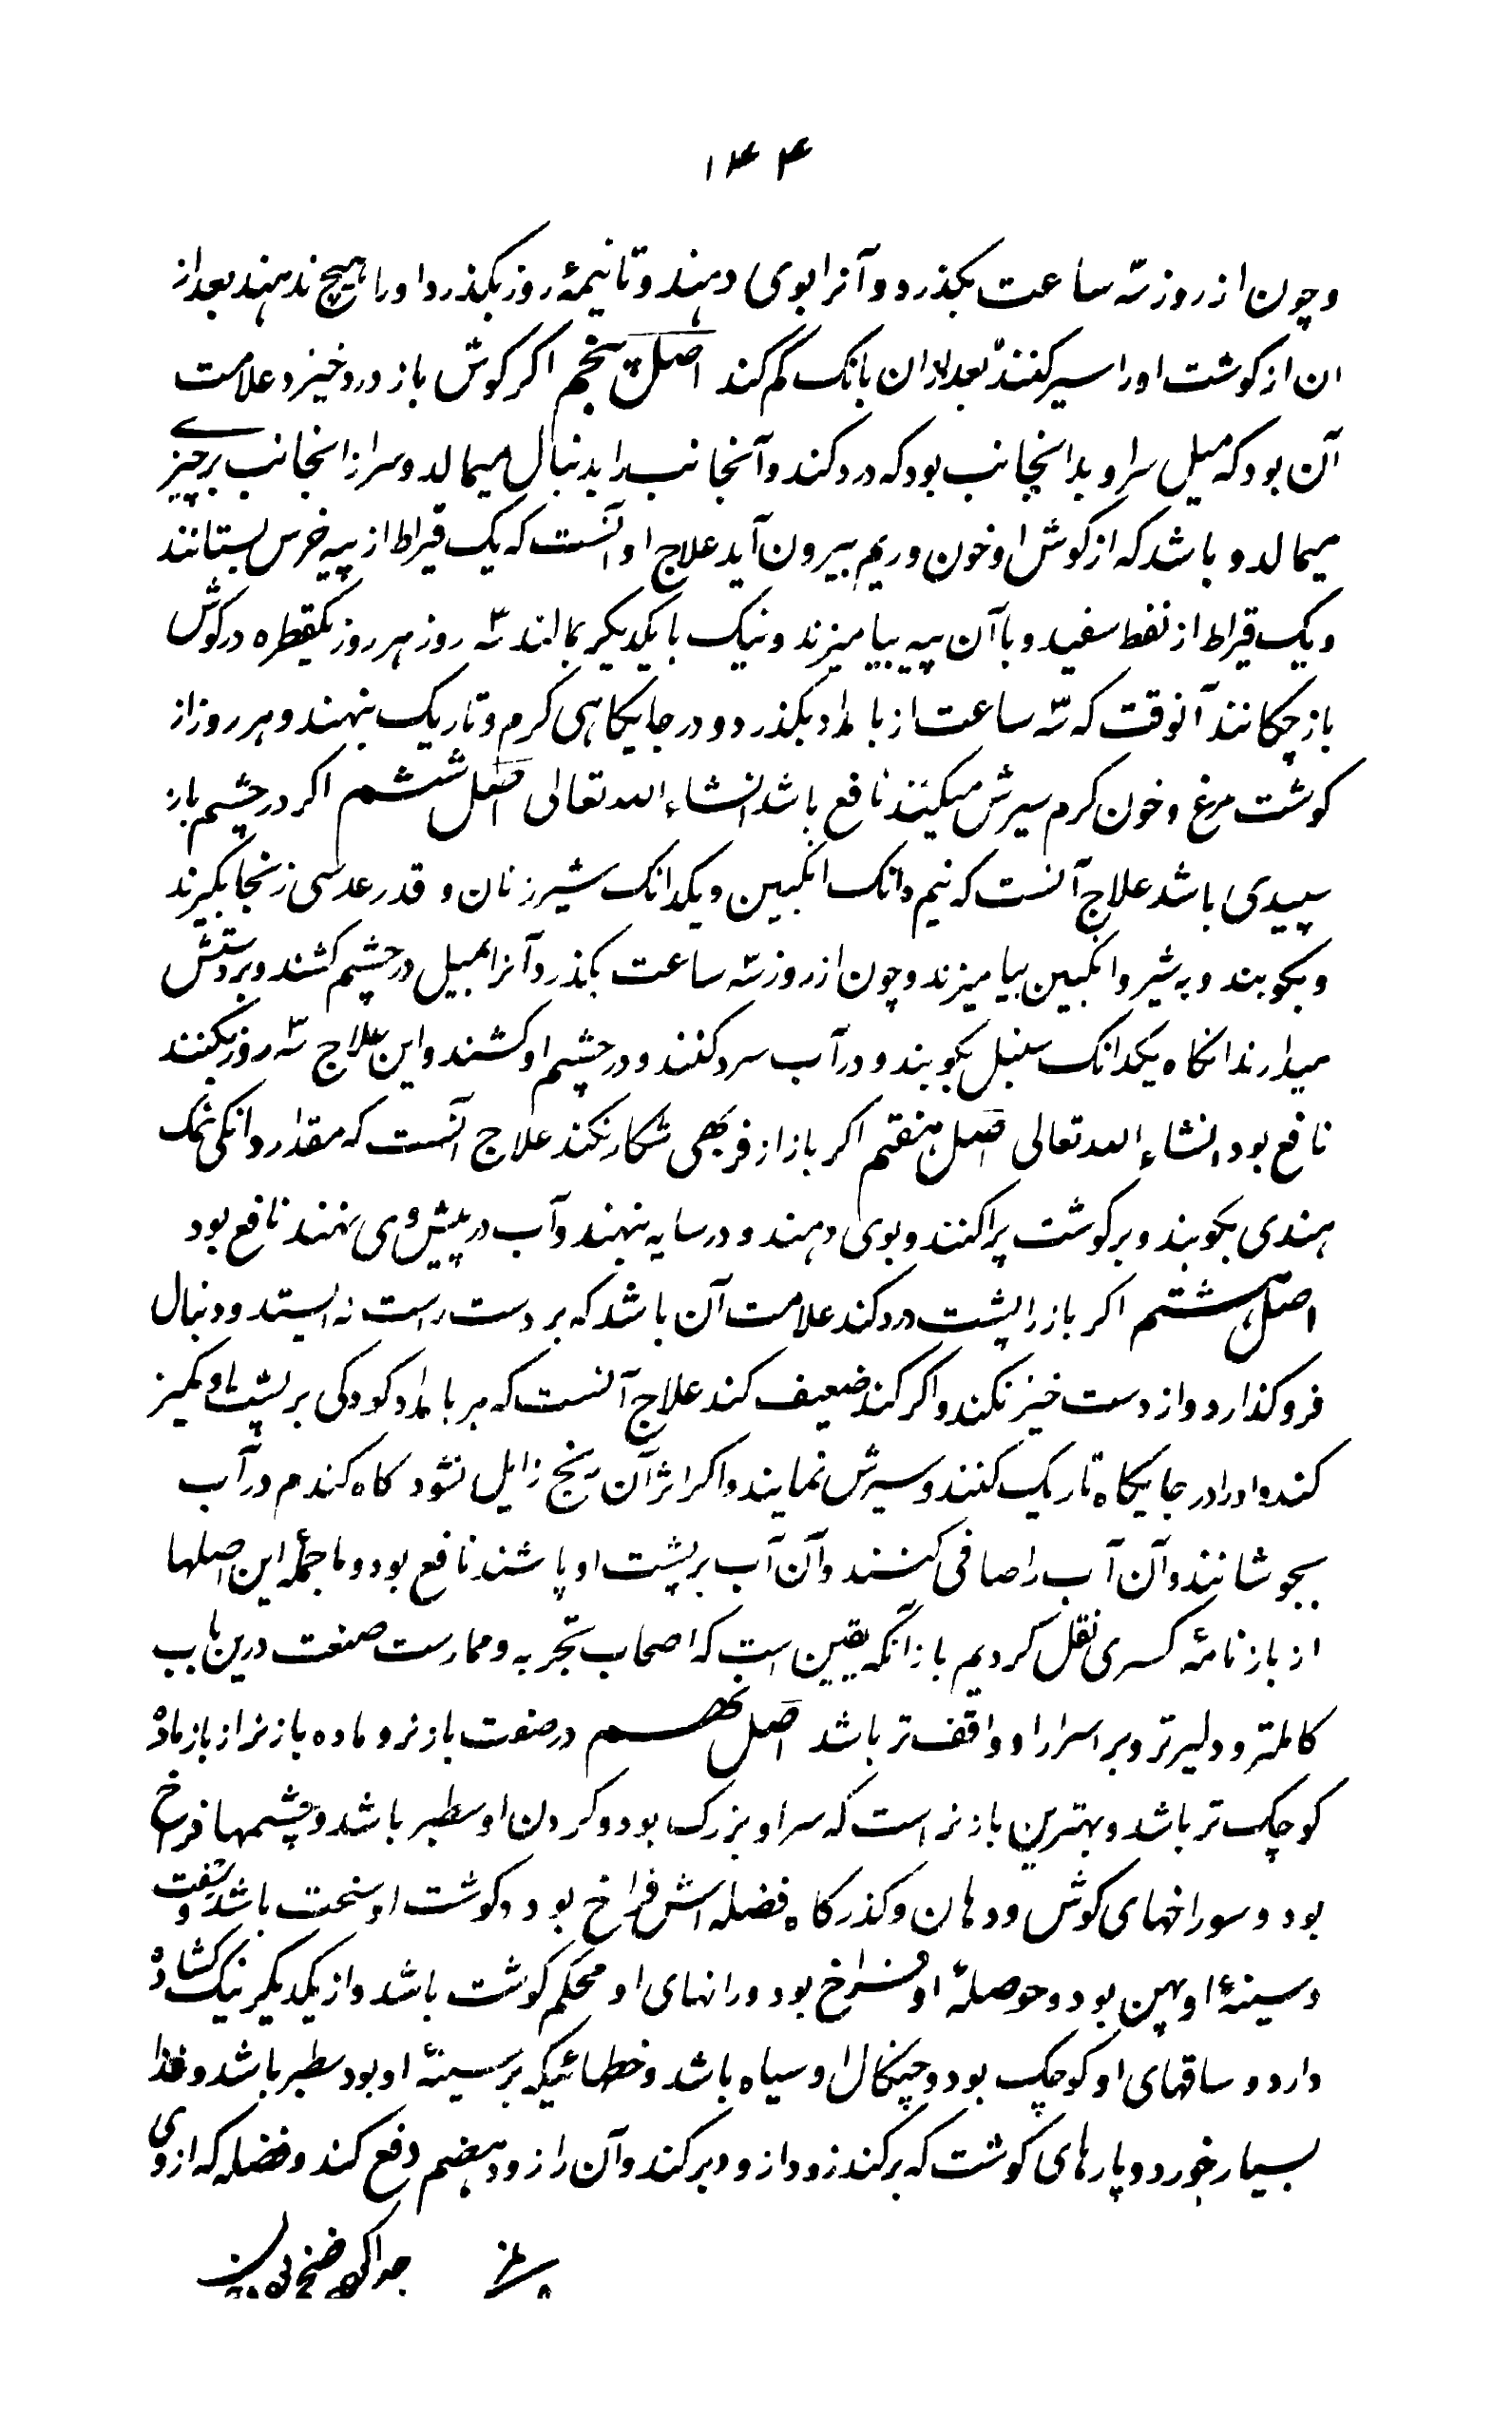 ۱۴۴
وچون از روز سه ساعت بکذرد و آنرا بوی دهند و تا نیمهٔ روز بکذرد او را هیچ ندهند بعد از
ان از کوشت او را سیر کنند بعد ازان بانک کم کند اصل پنجم اکر کوش باز درد خیزد علامت
آن بود که میل سر او بدانجانب بود که درد کند و آنجانب را بدنبال میمالد و سر از انجانب برچیزے
میمالد و باشد که از کوش او خون و ریم بیرون آید علاج او آنست که یک قیراط از پیه خرس بستانند
و یک قیراط از نفط سفید و با آن پیه بیامیزند و نیک با یکدیکر بمالند سه روز هر روز یکقطره در کوش
باز چکانند آنوقت که سه ساعت از بامداد بکذرد و در جایکاهی کرم و تاریک بنهند و هر روز از
کوشت مرغ و خون کرم سیرش میکنند نافع باشد انشاء الله تعالی اصل ششم اکر در چشم باز
سپیدی باشد علاج آنست که نیم دانک انکبین و یکدانک شیر زنان و قدر عدسی زنجا بکیرند
و بکوبند و به شیر و انکبین بیامیزند و چون از روز سه ساعت بکذرد آنرا بمیل در چشم کشند و بر دستش
میدارند انکاه یکدانک سنبل بکوبند و در آب سرد کنند و در چشم او کشند و این علاج سه روز بکنند
نافع بود انشاء الله تعالی اصل هفتم اکر باز از فربهی شکار نکند علاج آنست که مقدار دانکی نمک
هندی بکوبند و بر کوشت پراکنند و بوی دهند و در سایه بنهند و آب در پیش وی نهند نافع بود
اصل هشتم اکر باز را پشت درد کند علامت آن باشد که بر دست راست نه ایستد و دنبال
فرو کذارد و از دست خیز نکند و اکر کند ضعیف کند علاج آنست که هر بامداد کودکی بر پشت او کمیز
کند و او را در جایکاه تاریک کنند و سیرش نمایند و اکر اثر آن رنج زایل نشود کاه کندم در آب
بجوشانند و آن آب را صافی کنند و آن آب بر پشت او پاشند نافع بود و ما جملهٔ این اصلها
از باز نامهٔ کسری نقل کردیم باز آنکه یقین است که اصحاب تجربه و ممارست صنعت درین باب
کاملتر و دلیرتر و بر اسرار او واقف تر باشد اصل نهم در صفت باز نر و ماده باز نر از باز ماده
کوچک تر باشد و بهترین باز نر است که سر او بزرک بود و کردن او سطبر باشد و چشمها فراخ
بود و سوراخهای کوش و دهان و کذرکاه فضله اش فراخ بود و کوشت او سخت باشد و تفت
و سینهٔ او پهن بود و حوصلهٔ او فراخ بود و رانهای او محکم کوشت باشد و از یکدیکر نیک کشاده
دارد و ساقهای او کوچک بود و چنکال او سیاه باشد و خطهائیکه بر سینهٔ او بود سطبر باشد و غذا
بسیار خورد و پارهای کوشت که بر کند زود از ودبر کند و آن را زود هضم دفع کند و فضله که از وی
جدا